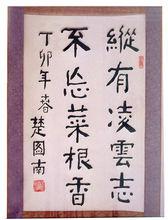 縱有凌雲志
不忘菜根香
丁卯年春
楚图南